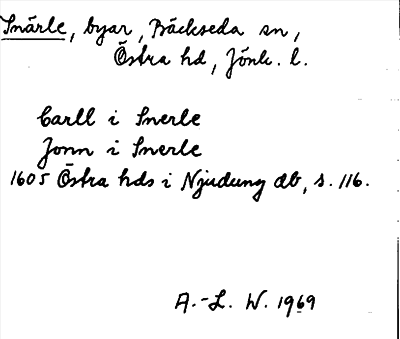 Snärle, byar, Bäckseda sn,
Östra hd, Jönk. l.
Carll i Snerle
Jonn i Snerle
1605 Östra hds i Njudung db, s. 116.
A.-L. W. 1969